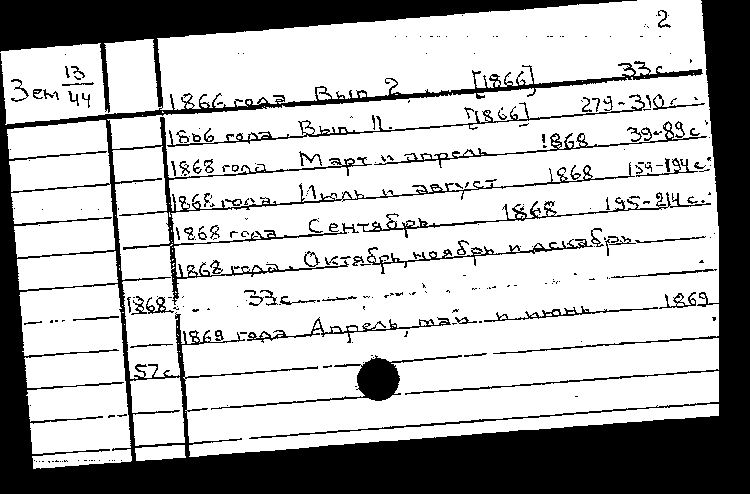 2
Зем 13/44
1866 года. Вып. 2. [1866] 33с.
1866 года. Вып. 11. [1866] 279-310с.
1868 года. Март и апрель 1868 39-89с.
1868 года. Июль и август. 1868 159-194с.
1868 года. Сентябрь. 1868 195-214с.
1868 года. Октябрь, ноябрь и декабрь.
1868 33с.
1869 года Апрель, май и июнь 1869
57с.